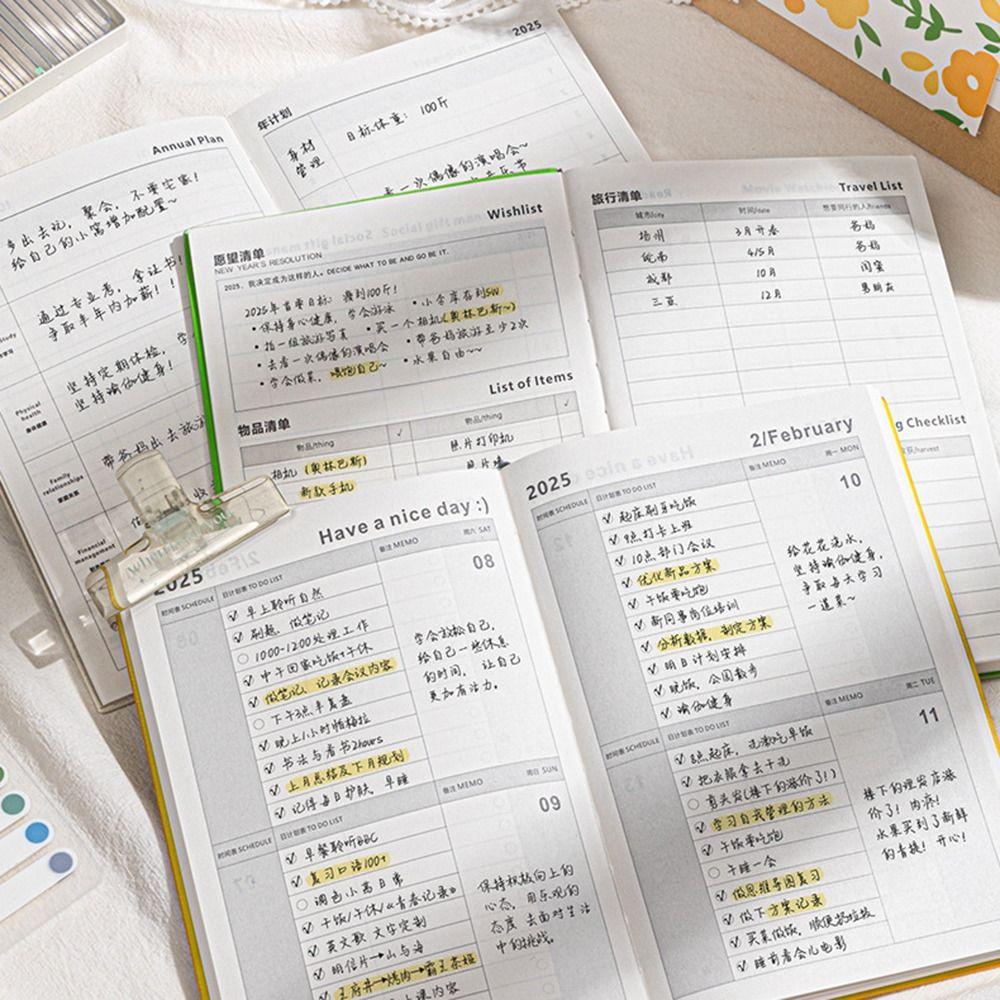 Annual Plan
多出去玩,聚会,不要宅家!
给自己的小窝增加配置~
通过专业考,拿证书!
争取半年内加薪!!
坚持定期体检,学
坚持瑜伽健身!
Physical
health
身体健康
带爸妈出去旅游
Family
relationships
家庭关系
Financial
management
2025
年计划
身材
管理
目标体重:100斤
去一次偶像的演唱会~
音乐节
Wishlist
愿望清单
NEW YEAR'S RESOLUTION
2025,我决定成为这样的人。DECIDE WHAT TO BE AND GO BE IT.
2025年首要目标:瘦到100斤!
• 保持身心健康,学会游泳
• 拍一组旅游写真
• 去看一次偶像的演唱会
• 学会做菜,喂饱自己~
• 小金库存到5W
• 买一个相机(奥林巴斯~)
• 带爸妈旅游至少2次
• 水果自由~~
List of Items
物品清单
物品/thing
√
物品/thing
√
相机(奥林巴斯)
照片打印机
新款手机
照片墙
旅行清单
Travel List
城市/city
时间/date
想要同行的人/friends
扬州
3月开春
爸妈
4/5月
爸妈
成都
10月
闺蜜
三亚
12月
男朋友
g Checklist
收获/harvest
Have a nice day :)
2025
时间表 SCHEDULE
日计划表 TO DO LIST
备注 MEMO
周六 SAT
08
早上聆听自然
刷题、做笔记
1000-1200处理工作
中午回家吃饭+午休
做笔记、记录会议内容
下午3点半复盘
晚上1小时帕梅拉
书法与看书2hours
上月总结及下月规划
记得每日护肤、早睡
学会放松自己,
给自己一些休息
的时间,让自己
更加有活力。
时间表 SCHEDULE
日计划表 TO DO LIST
备注 MEMO
周日 SUN
09
早餐聆听BBC
复习口语100+
调色小高日常
午饭/午休/以青春记录
英文歌 文字定制
明信片→山与海
王府井→烤肉→霸王茶姬
课内容
保持积极向上的
心态,用乐观的
态度去面对生活
中的挑战。
2025
2/February
时间表 SCHEDULE
日计划表 TO DO LIST
备注 MEMO
周一 MON
10
起床刷牙吃饭
9点打卡上班
10点部门会议
优化新品方案
午饭要吃饱
新同事岗位培训
分析数据、制定方案
明日计划安排
晚饭,公园散步
瑜伽健身
给花花浇水,
坚持瑜伽健身,
争取每天学习
一道菜~
时间表 SCHEDULE
日计划表 TO DO LIST
备注 MEMO
周二 TUE
11
8点起床,洗漱吃早饭
把衣服拿去干洗
剪头发(楼下的涨价了!)
学习自我管理的方法
午饭要吃饱
午睡一会
做思维导图复习
做下方案记录
买菜做饭,顺便扔垃圾
睡前看会儿电影
楼下的理发店涨
价了!肉疼!
水果买到了新鲜
的青提!开心!